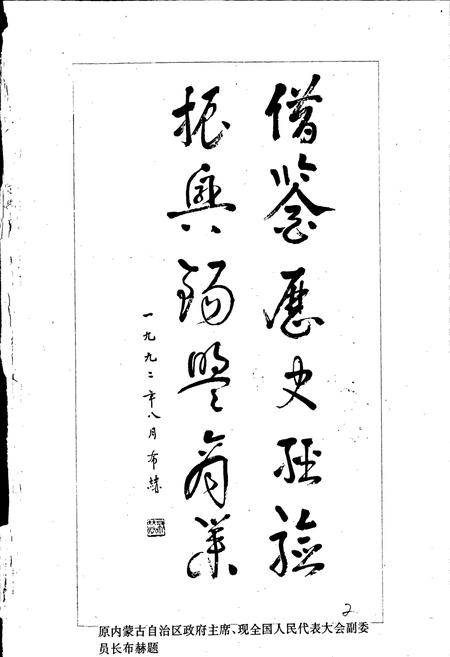 借鉴历史经验
振兴锡盟商业
一九九二年八月布赫
2
原内蒙古自治区政府主席、现全国人民代表大会副委
员长布赫题